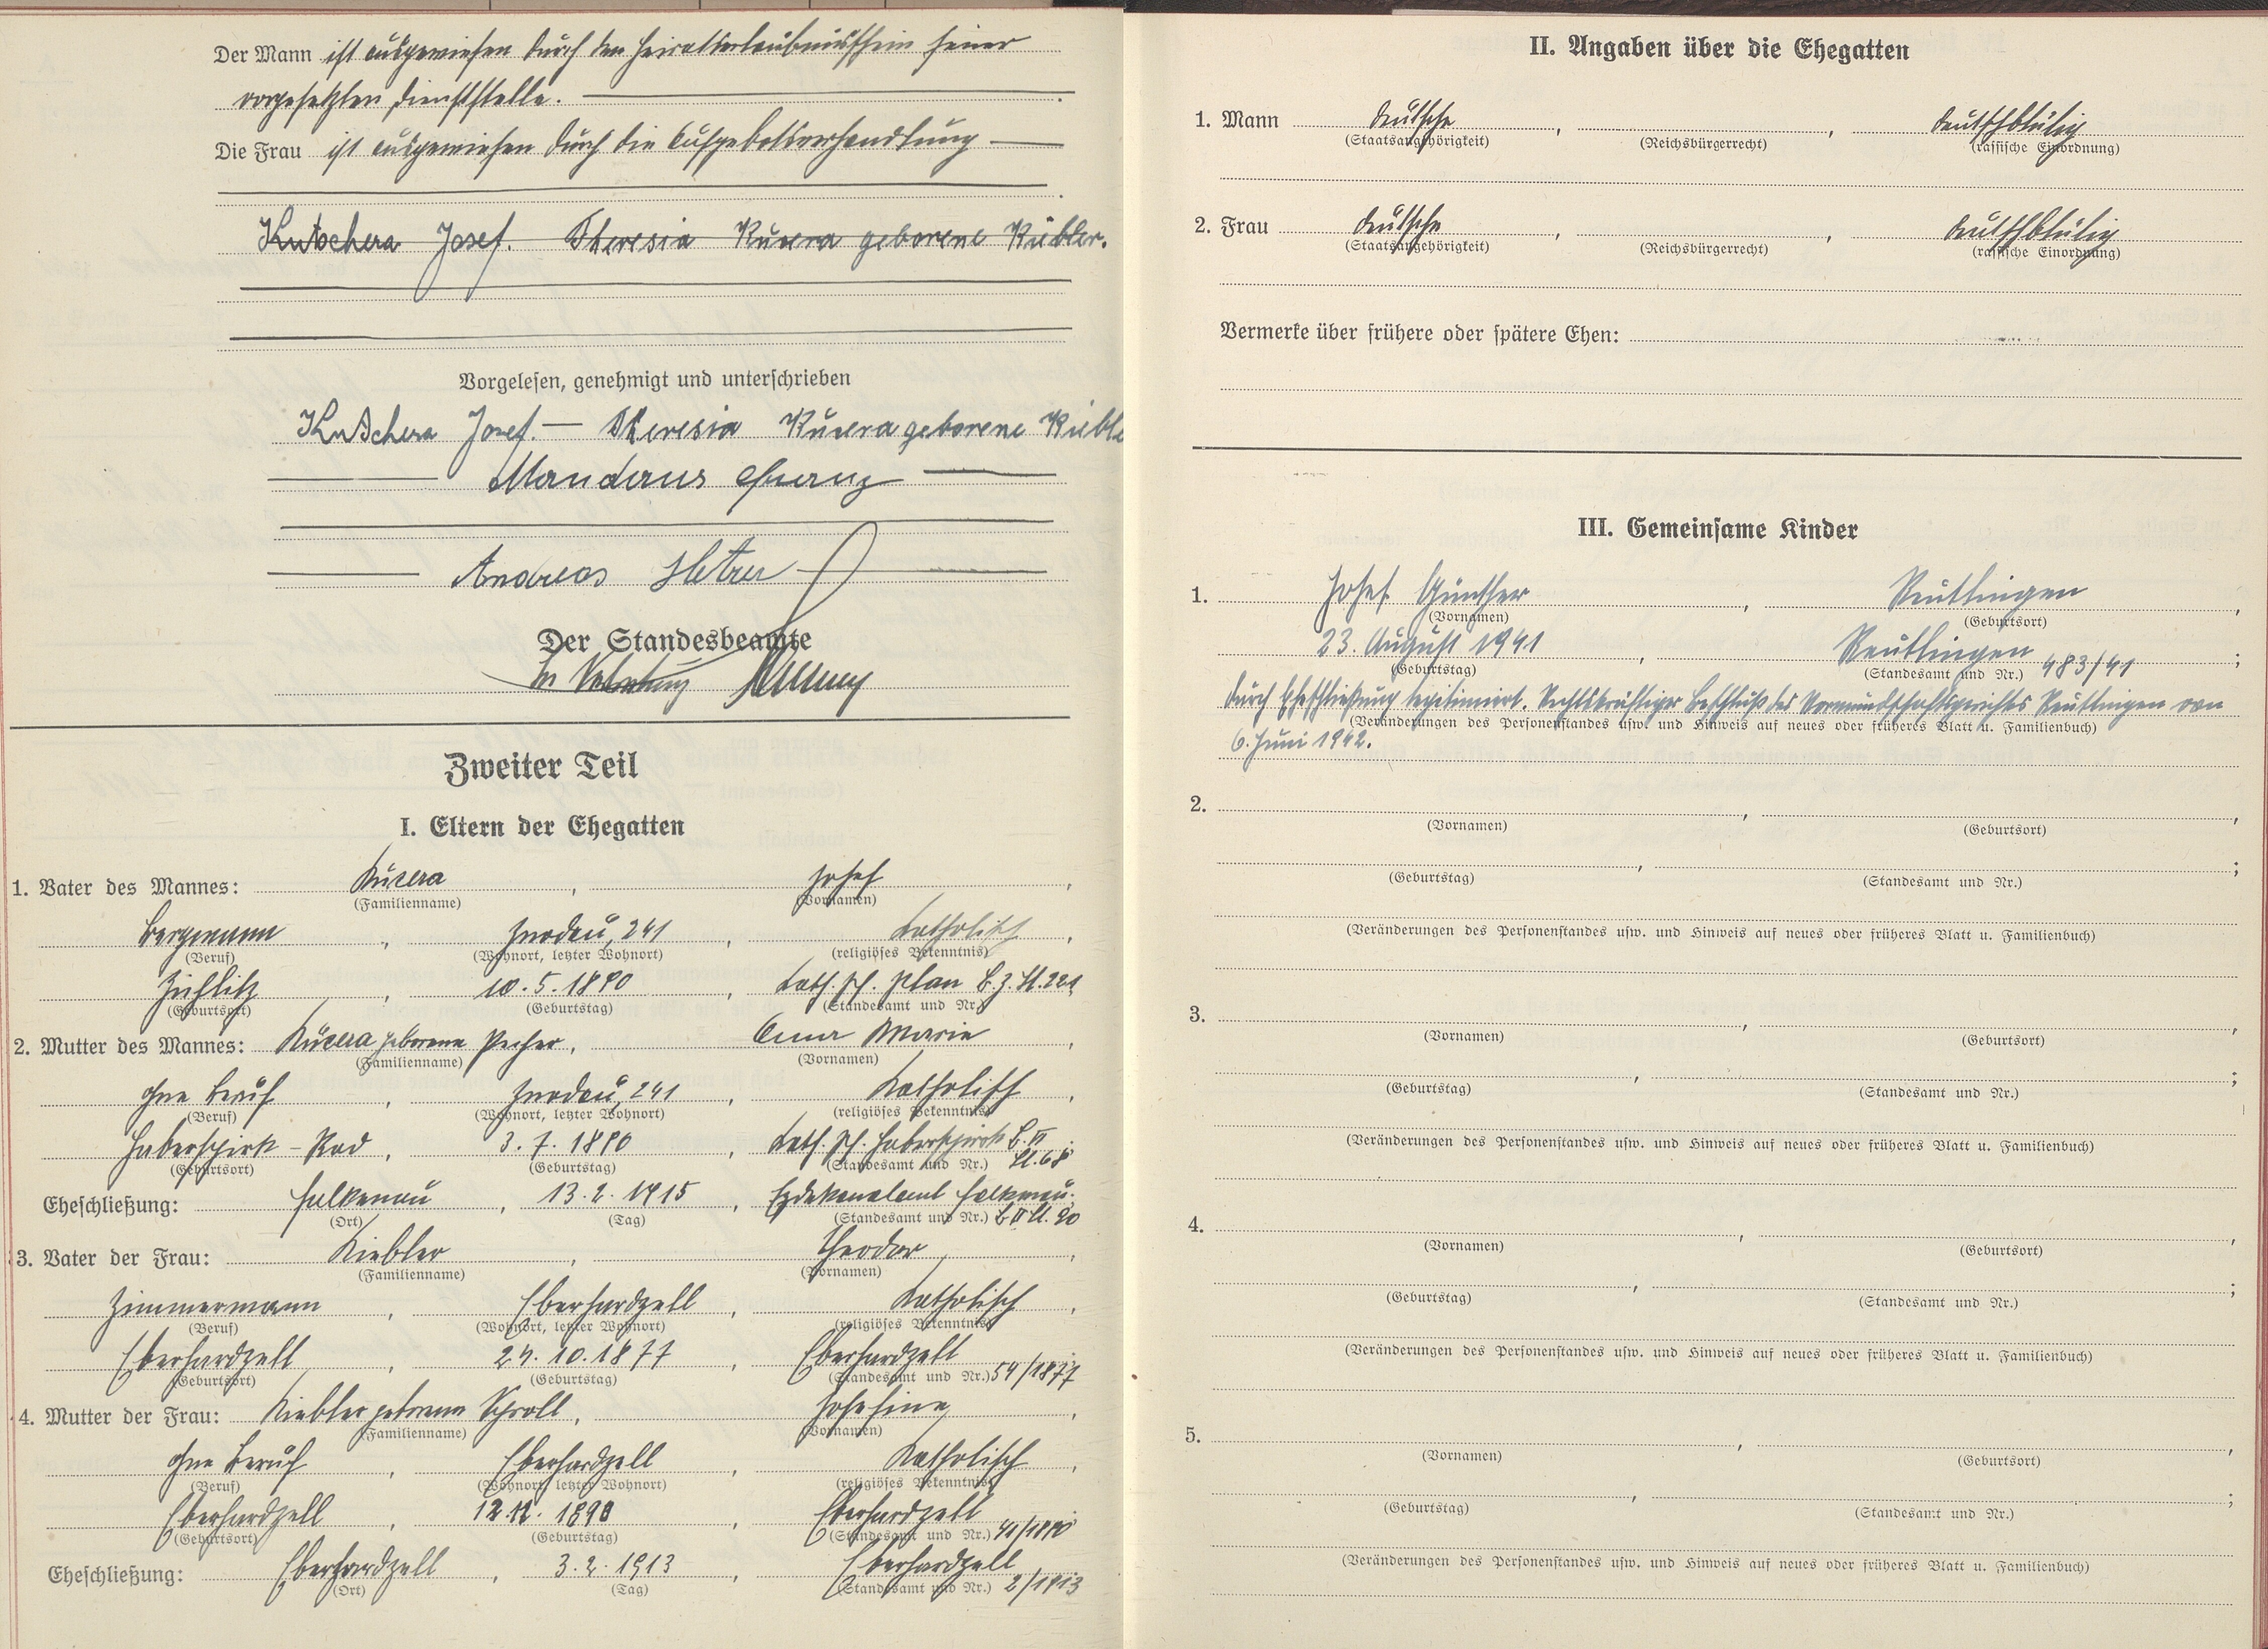 Der Mann ist ausgewiesen durch den Heiratserlaubnisschein seiner
vorgesetzten Dienststelle.
Die Frau ist ausgewiesen durch die Aufgebotsverhandlung
Kutschera Josef. Theresia Kucera geborene Kiebler.
Vorgelesen, genehmigt und unterschrieben
Kutschera Josef. — Theresia Kucera geborene Kieble
Mandaus Franz
Andreas
Der Standesbeamte
In Vertretung
Zweiter Teil
I. Eltern der Ehegatten
1. Vater des Mannes: Kucera, Josef,
(Familienname) (Vornamen)
Bergmann, Zwodau, 241, katholisch,
(Beruf) (Wohnort, letzter Wohnort) (religiöses Bekenntnis)
10.5.1890, kath. Pf. Plan
(Geburtsort) (Geburtstag) (Standesamt und Nr.)
2. Mutter des Mannes: Kucera geborene Pecher, Anna Marie,
(Familienname) (Vornamen)
ohne Beruf, Zwodau, 241, katholisch,
(Beruf) (Wohnort, letzter Wohnort) (religiöses Bekenntnis)
Haberspirk - Rad, 3.7.1890, kath. Pf. Haberspirk B. II Bl. 68
(Geburtsort) (Geburtstag) (Standesamt und Nr.)
Eheschließung: Falkenau, 13.2.1915, Erzdekanalamt Falkenau.
(Ort) (Tag) (Standesamt und Nr.)
3. Vater der Frau: Kiebler, Theodor,
(Familienname) (Vornamen)
Zimmermann, Eberhardzell, katholisch,
(Beruf) (Wohnort, letzter Wohnort) (religiöses Bekenntnis)
Eberhardzell, 24.10.1877, Eberhardzell 54/1877
(Geburtsort) (Geburtstag) (Standesamt und Nr.)
4. Mutter der Frau: Kiebler geborene Schroll, Josefine,
(Familienname) (Vornamen)
ohne Beruf, Eberhardzell, katholisch,
(Beruf) (Wohnort, letzter Wohnort) (religiöses Bekenntnis)
Eberhardzell, 12.12.1890, Eberhardzell
(Geburtsort) (Geburtstag) (Standesamt und Nr.)
Eheschließung: Eberhardzell, 3.2.1913, Eberhardzell 2/1913
(Ort) (Tag) (Standesamt und Nr.)
II. Angaben über die Ehegatten
1. Mann deutsche, , deutschblütig
(Staatsangehörigkeit) (Reichsbürgerrecht) (rassische Einordnung)
2. Frau deutsche, , deutschblütig
(Staatsangehörigkeit) (Reichsbürgerrecht) (rassische Einordnung)
Vermerke über frühere oder spätere Ehen:
III. Gemeinsame Kinder
1. Josef Günther, Reutlingen,
(Vornamen) (Geburtsort)
23. August 1941, Reutlingen 483/41;
(Geburtstag) (Standesamt und Nr.)
durch Eheschließung legitimiert. Rechtskräftiger Beschluß des Vormundschaftsgerichtes Reutlingen von
(Veränderungen des Personenstandes usw. und Hinweis auf neues oder früheres Blatt u. Familienbuch)
6. Juni 1942.
2. , ,
(Vornamen) (Geburtsort)
, ;
(Geburtstag) (Standesamt und Nr.)
(Veränderungen des Personenstandes usw. und Hinweis auf neues oder früheres Blatt u. Familienbuch)
3. , ,
(Vornamen) (Geburtsort)
, ;
(Geburtstag) (Standesamt und Nr.)
(Veränderungen des Personenstandes usw. und Hinweis auf neues oder früheres Blatt u. Familienbuch)
4. , ,
(Vornamen) (Geburtsort)
, ;
(Geburtstag) (Standesamt und Nr.)
(Veränderungen des Personenstandes usw. und Hinweis auf neues oder früheres Blatt u. Familienbuch)
5. , ,
(Vornamen) (Geburtsort)
, ;
(Geburtstag) (Standesamt und Nr.)
(Veränderungen des Personenstandes usw. und Hinweis auf neues oder früheres Blatt u. Familienbuch)